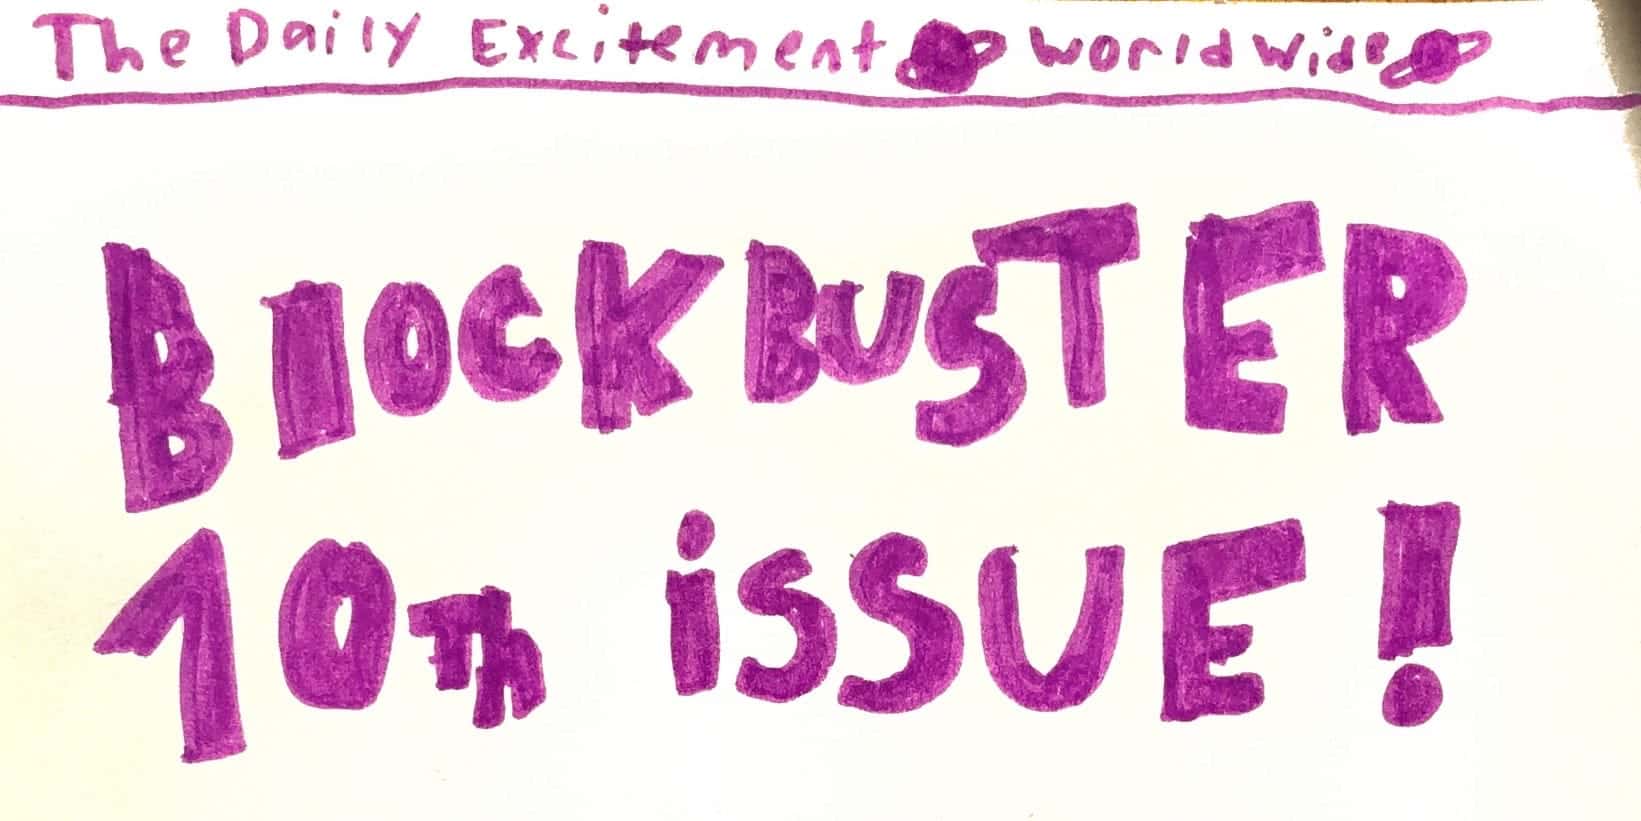 The Daily Excitement worldwide
BlOCKBUSTER
10Th iSSUE!